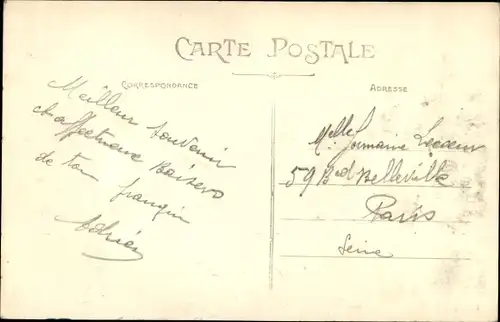 CARTE POSTALE
CORRESPONDANCE
ADRESSE
Meilleur souvenir
et affectueux Baisers
de ton frangin
Adrien
Melle Germaine
59 Bd Belleville
Paris
Seine